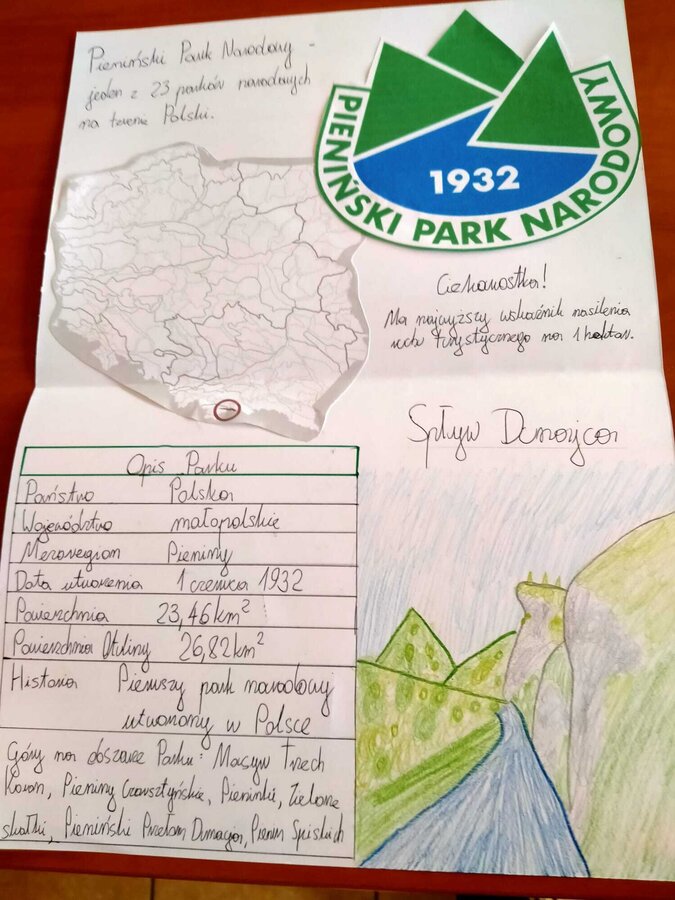 Pieniński Park Narodowy -
jeden z 23 parków narodowych
na terenie Polski.
PIENIŃSKI PARK NARODOWY
1932
Ciekawostka!
Ma najwyższy wskaźnik nasilenia
ruchu turystycznego na 1 hektar.
Spływ Dunajca
Opis Parku
Państwo Polska
Województwo małopolskie
Mezoregion Pieniny
Data utworzenia 1 czerwca 1932
Powierzchnia 23,46 km²
Powierzchnia Otuliny 26,82 km²
Historia Pierwszy park narodowy
utworzony w Polsce
Góry na obszarze Parku: Masyw Trzech
Koron, Pieniny Czorsztyńskie, Pieninki, Zielone
skałki, Pieniński Przełom Dunajca, Pienin Spiskich